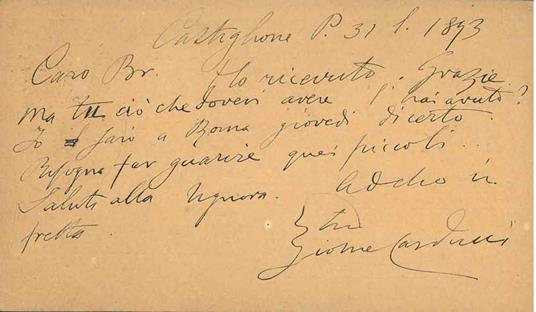 Castiglione P. 31 1. 1893
Caro Br. Ho ricevuto. Grazie.
Ma tu ciò che dovevi avere l'hai avuto?
Io sarò a Roma giovedì di certo.
Bisogna far guarire quei piccoli...
Saluti alla Signora. Addio in
fretta.
tuo
Giosue Carducci